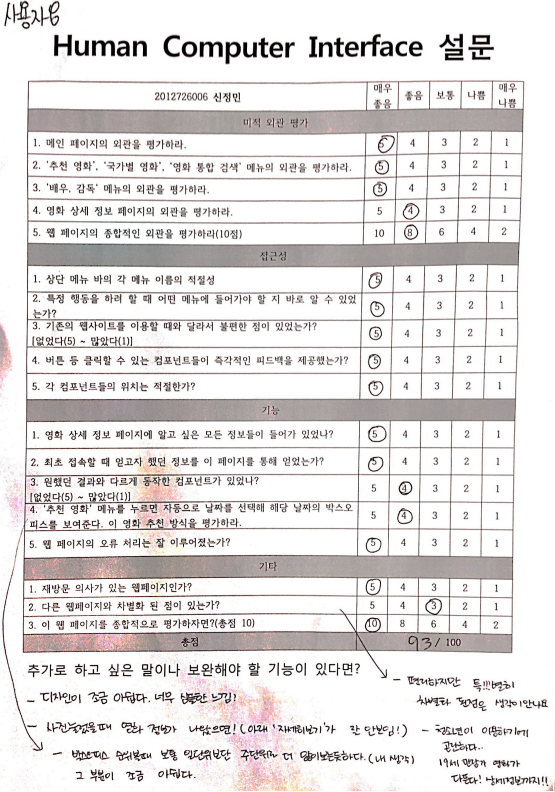 사용자용
Human Computer Interface 설문
2012726006 신정민 매우 좋음 좋음 보통 나쁨 매우 나쁨
미적 외관 평가
1. 메인 페이지의 외관을 평가하라. 5 4 3 2 1
2. '추천 영화', '국가별 영화', '영화 통합 검색' 메뉴의 외관을 평가하라. 5 4 3 2 1
3. '배우, 감독' 메뉴의 외관을 평가하라. 5 4 3 2 1
4. 영화 상세 정보 페이지의 외관을 평가하라. 5 4 3 2 1
5. 웹 페이지의 종합적인 외관을 평가하라(10점) 10 8 6 4 2
접근성
1. 상단 메뉴 바의 각 메뉴 이름의 적절성 5 4 3 2 1
2. 특정 행동을 하려 할 때 어떤 메뉴에 들어가야 할 지 바로 알 수 있었
는가? 5 4 3 2 1
3. 기존의 웹사이트를 이용할 때와 달라서 불편한 점이 있었는가?
[없었다(5) ~ 많았다(1)] 5 4 3 2 1
4. 버튼 등 클릭할 수 있는 컴포넌트들이 즉각적인 피드백을 제공했는가? 5 4 3 2 1
5. 각 컴포넌트들의 위치는 적절한가? 5 4 3 2 1
기능
1. 영화 상세 정보 페이지에 알고 싶은 모든 정보들이 들어가 있었나? 5 4 3 2 1
2. 최초 접속할 때 얻고자 했던 정보를 이 페이지를 통해 얻었는가? 5 4 3 2 1
3. 원했던 결과와 다르게 동작한 컴포넌트가 있었나?
[없었다(5) ~ 많았다(1)] 5 4 3 2 1
4. '추천 영화' 메뉴를 누르면 자동으로 날짜를 선택해 해당 날짜의 박스오
피스를 보여준다. 이 영화 추천 방식을 평가하라. 5 4 3 2 1
5. 웹 페이지의 오류 처리는 잘 이루어졌는가? 5 4 3 2 1
기타
1. 재방문 의사가 있는 웹페이지인가? 5 4 3 2 1
2. 다른 웹페이지와 차별화 된 점이 있는가? 5 4 3 2 1
3. 이 웹 페이지를 종합적으로 평가하자면?(총점 10) 10 8 6 4 2
총점 93/ 100
추가로 하고 싶은 말이나 보완해야 할 기능이 있다면?
- 디자인이 조금 아쉽다. 너무 심플한 느낌!
- 사진눌렀을때 영화 정보가 나왔으면! (아래 '자세히보기'가 잘 안보임!)
- 박스오피스 순위볼때 보통 일단위보단 주단위로 더 많이보는듯하다. (내 생각)
그 부분이 조금 아쉽다.
- 편리하지만 특!!!별히
차별화 된점은 생각이안나요
- 청소년이 이용하기에
곤란하다..
19세 만화가 영화가
다뜬다! 상세정보까지!!